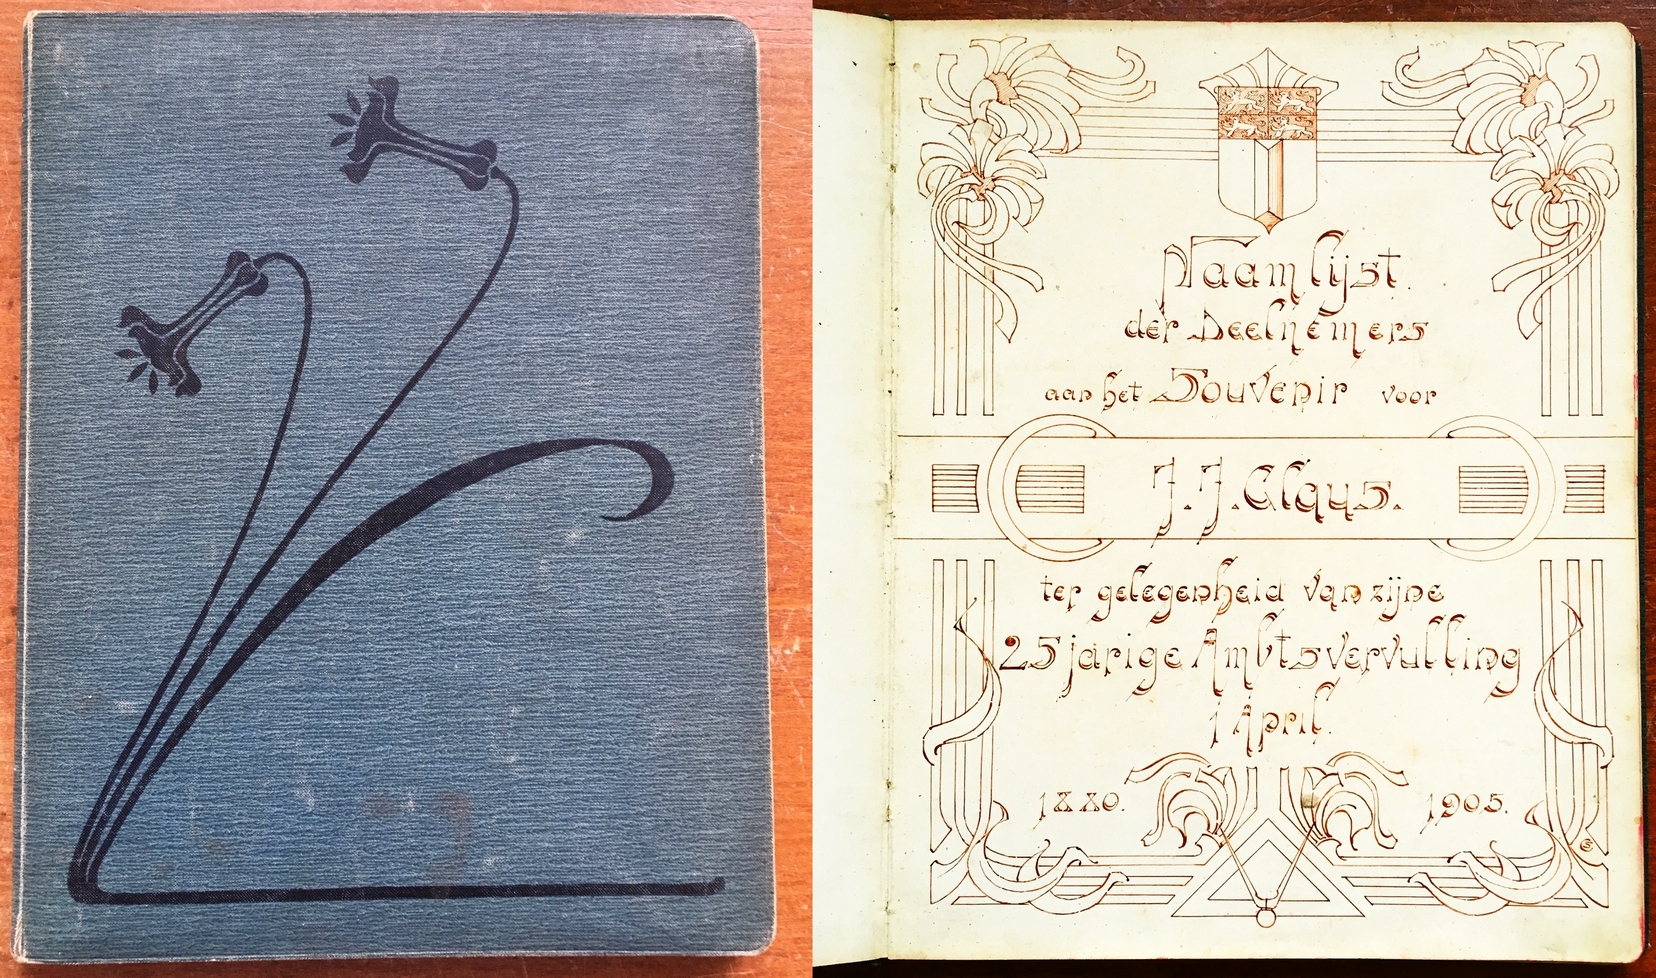 Naamlijst
der Deelnemers
aan het Souvenir voor
J.J. Clays.
ter gelegenheid van zijne
25 jarige Ambtsvervulling
1 April.
1880. 1905.